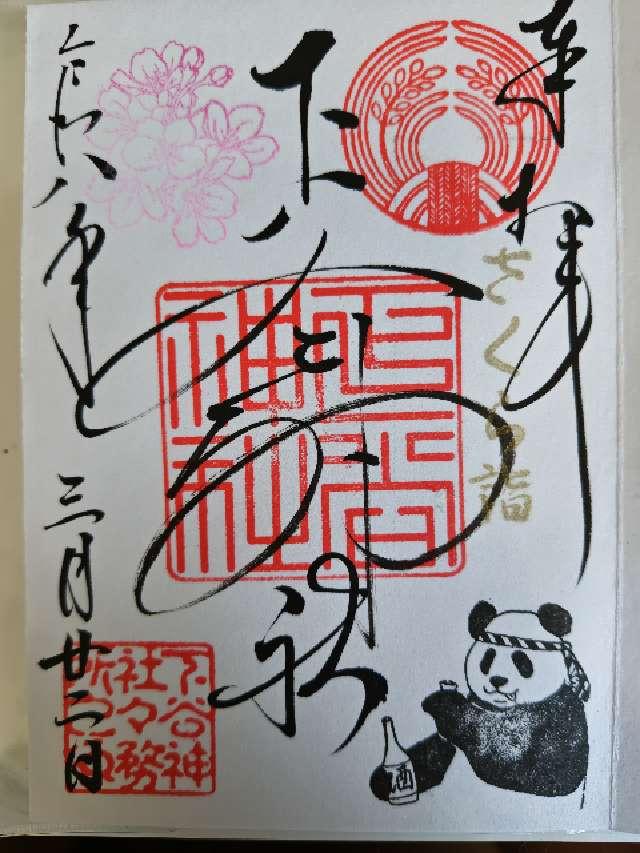 奉拝
さくら詣
下谷神社
令和八年
三月廿二日
下谷神
社々務
所之印
酒